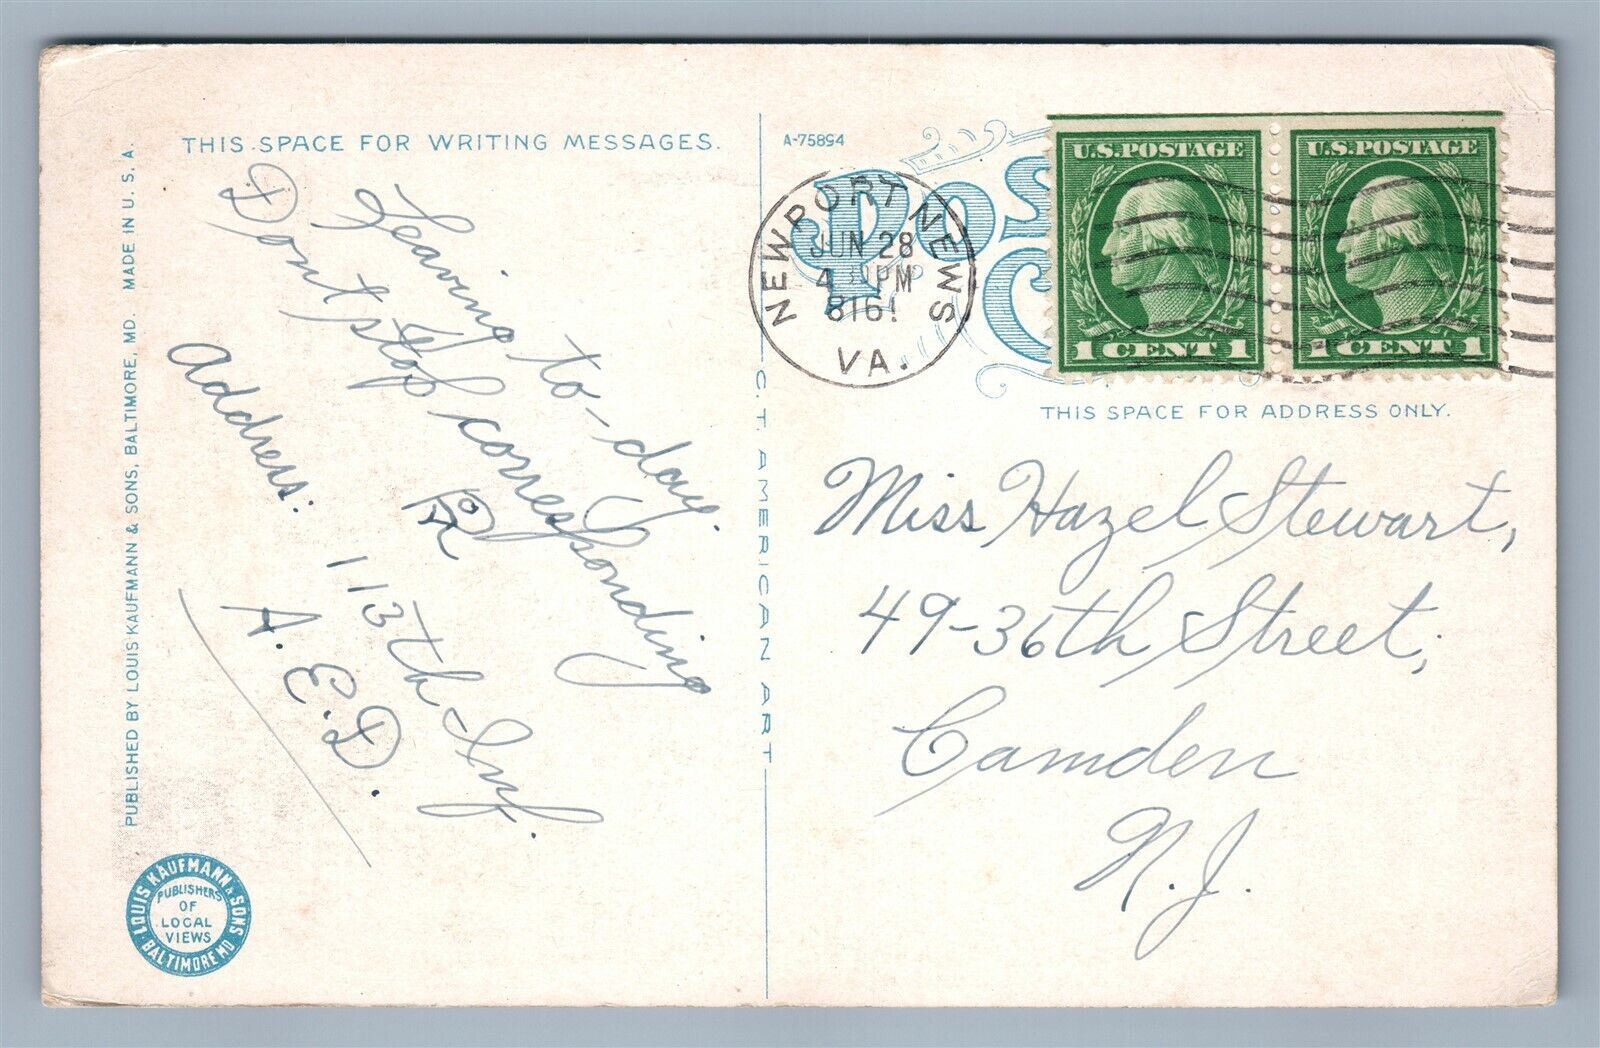 THIS SPACE FOR WRITING MESSAGES.
Leaving to-day.
Dont stop corresponding
Address:
113th Inf.
A. E. D.
PUBLISHED BY LOUIS KAUFMANN & SONS, BALTIMORE, MD. MADE IN U. S. A.
LOUIS KAUFMANN & SONS
BALTIMORE MD
PUBLISHERS
OF
LOCAL
VIEWS
C. T. AMERICAN ART
A-75894
POS
C
NEWPORT NEWS
JUN 28
4 PM
VA.
U.S. POSTAGE
1 CENT 1
U.S. POSTAGE
1 CENT 1
THIS SPACE FOR ADDRESS ONLY.
Miss Hazel Stewart,
49-36th Street,
Camden
N. J.